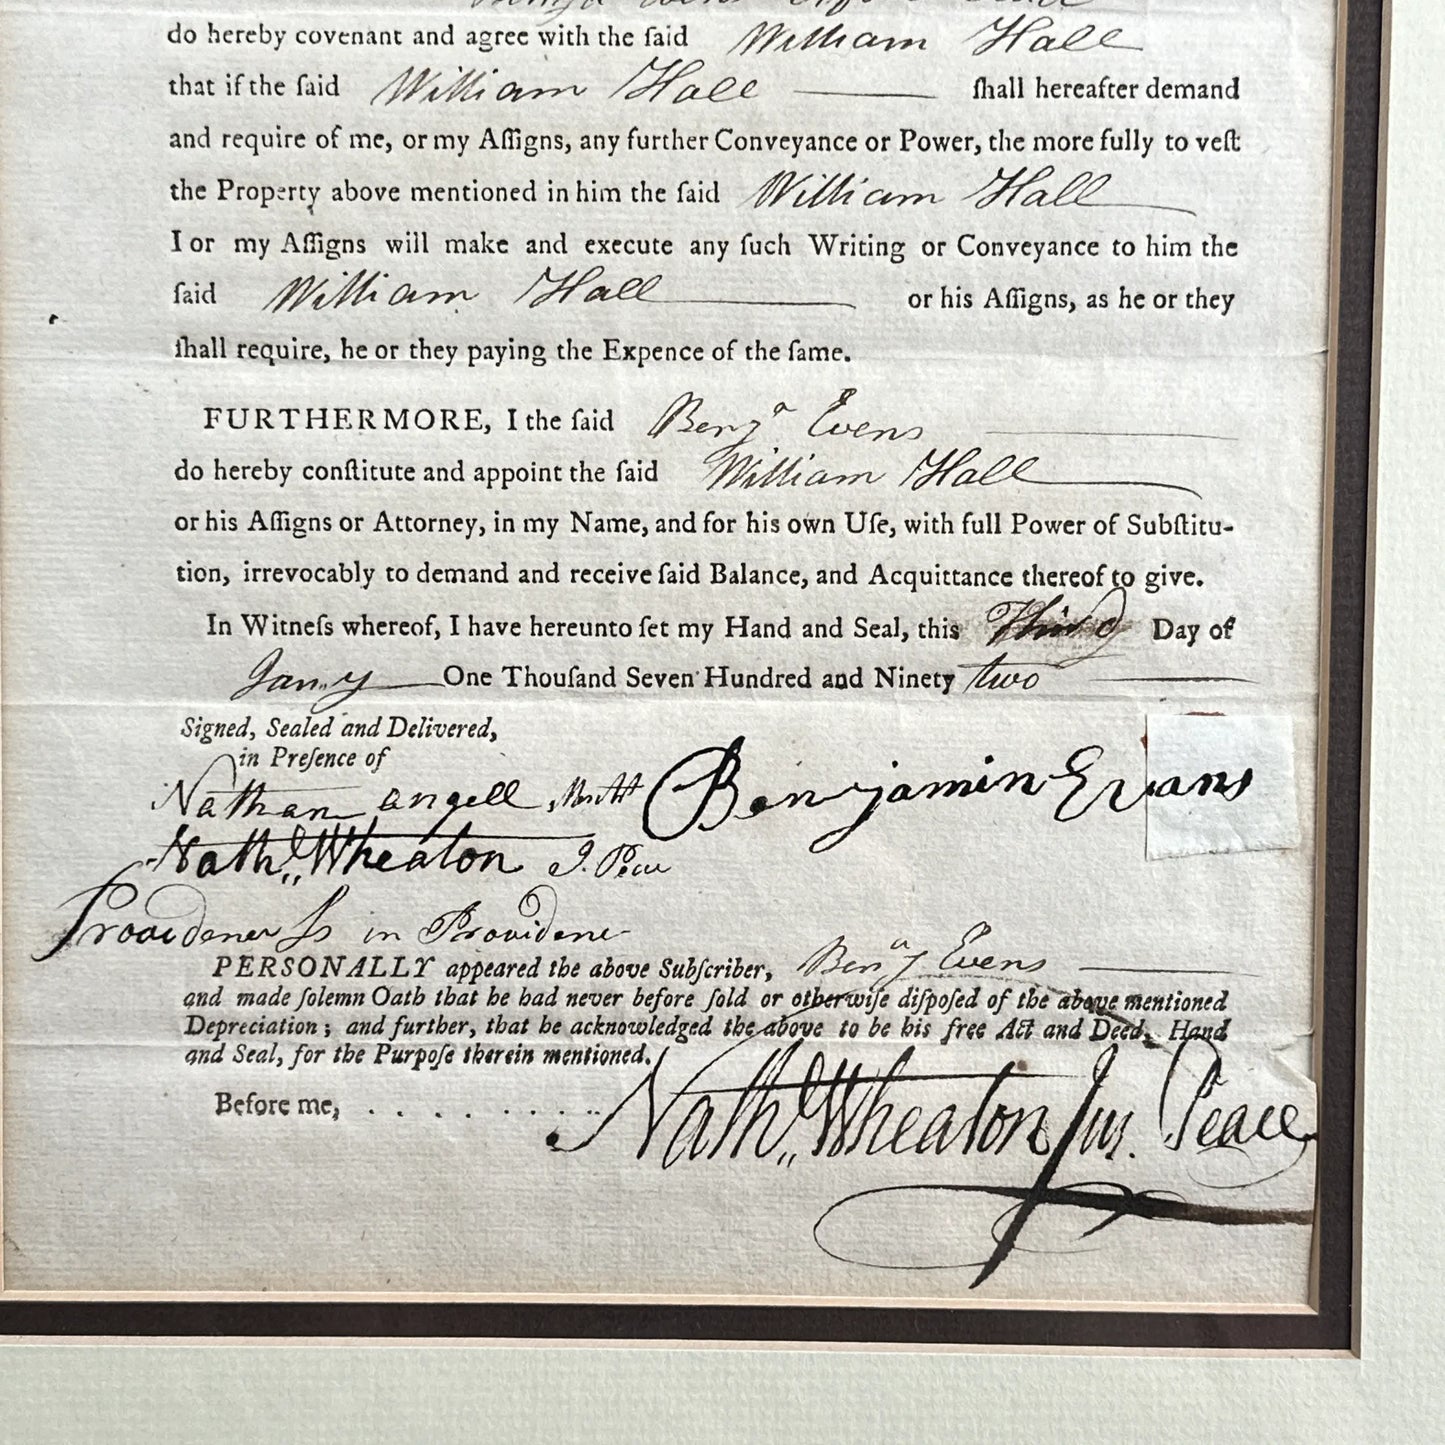 do hereby covenant and agree with the ſaid William Hall
that if the ſaid William Hall ſhall hereafter demand
and require of me, or my Aſſigns, any further Conveyance or Power, the more fully to veſt
the Property above mentioned in him the ſaid William Hall
I or my Aſſigns will make and execute any ſuch Writing or Conveyance to him the
ſaid William Hall or his Aſſigns, as he or they
ſhall require, he or they paying the Expence of the ſame.
FURTHERMORE, I the ſaid Benjᵃ Evens
do hereby conſtitute and appoint the ſaid William Hall
or his Aſſigns or Attorney, in my Name, and for his own Uſe, with full Power of Subſtitu-
tion, irrevocably to demand and receive ſaid Balance, and Acquittance thereof to give.
In Witneſs whereof, I have hereunto ſet my Hand and Seal, this Third Day of
Jany One Thouſand Seven Hundred and Ninety two
Signed, Sealed and Delivered,
in Preſence of
Nathan angell
Benjamin Evans
Nathl Wheaton J. Peac
Providence Ss in Providence
PERSONALLY appeared the above Subſcriber, Benjᵃ Evens
and made ſolemn Oath that he had never before ſold or otherwiſe diſpoſed of the above mentioned
Depreciation; and further, that he acknowledged the above to be his free Act and Deed, Hand
and Seal, for the Purpoſe therein mentioned.
Before me, . . . . . . . . Nathl Wheaton Jus. Peace